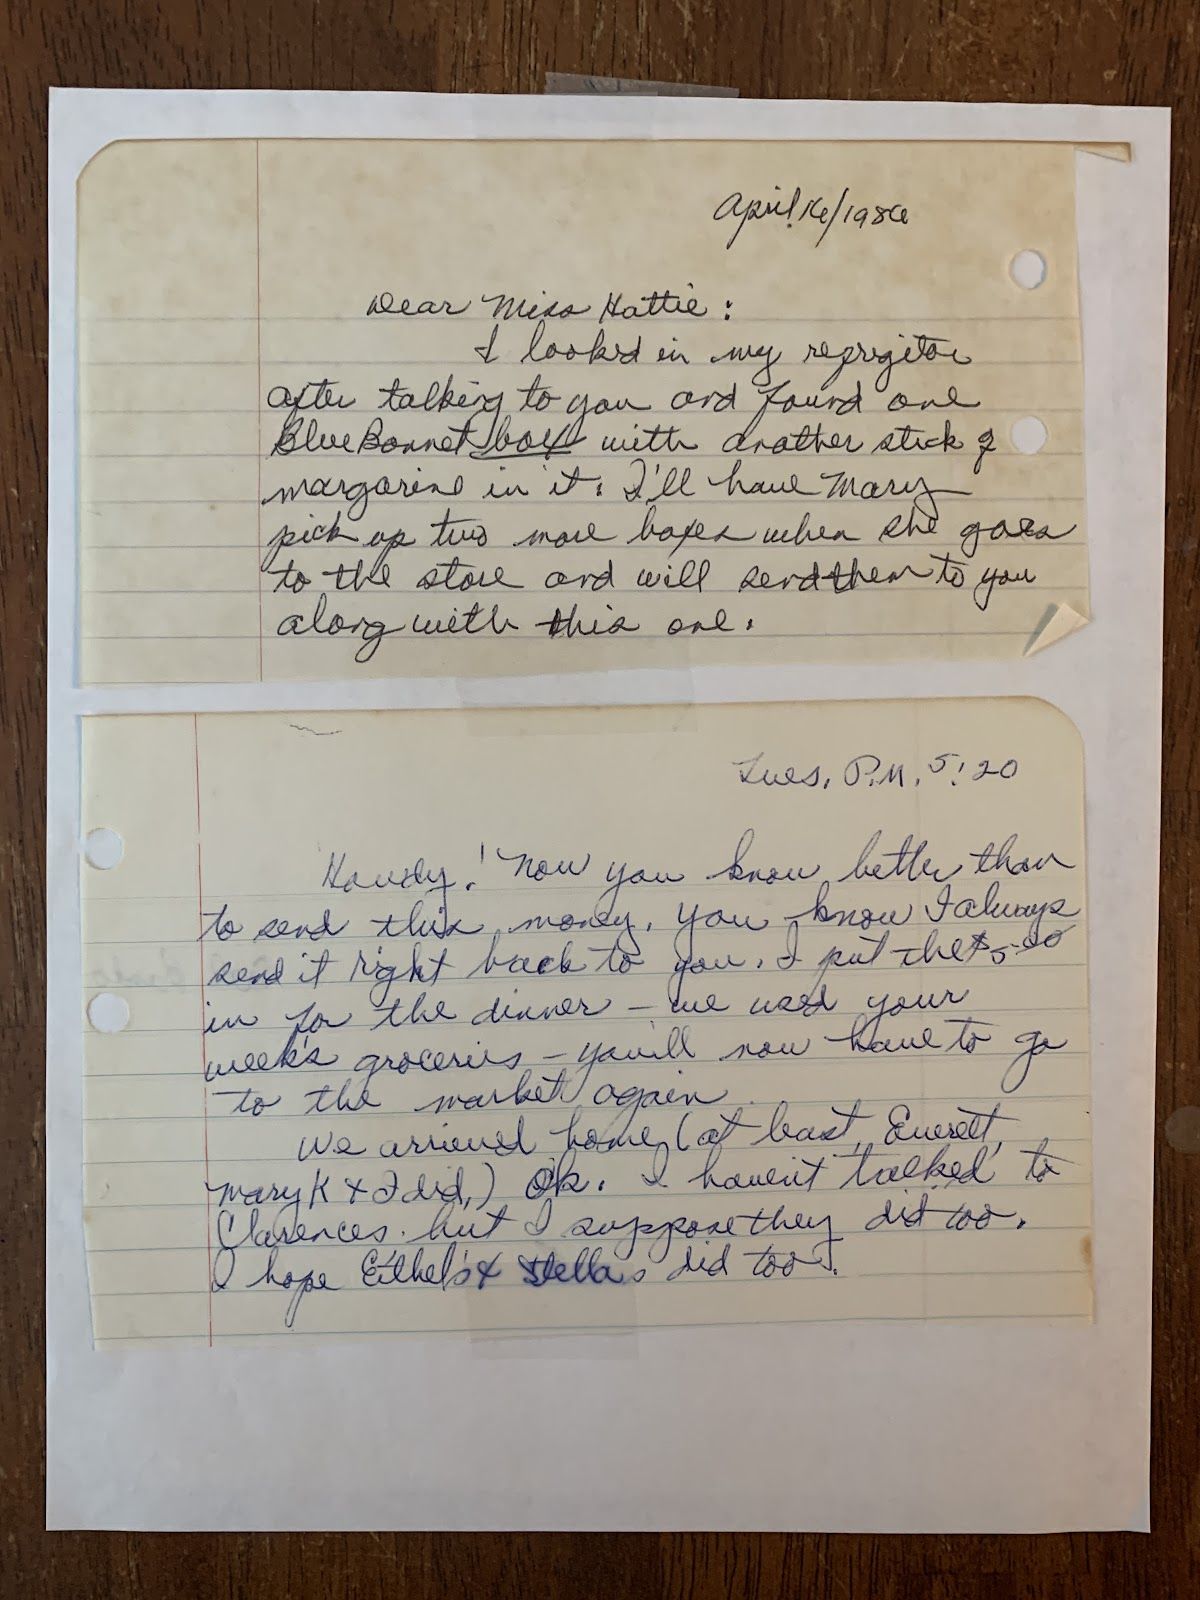 April 16/1986
Dear Miss Hattie:
I looked in my refrigitor
after talking to you and found one
Blue Bonnet box with another stick of
margarine in it. I'll have Mary
pick up two more boxes when she goes
to the store and will send them to you
along with this one.
Tues. P.M. 5:20
Howdy! Now you know better than
to send this money. You know I always
send it right back to you. I put the $5.00
in for the dinner - we used your
week's groceries - you'll now have to go
to the market again.
We arrived home (at least, Everett,
Mary K & I did,) Ok. I haven't talked to
Clarences but I suppose they did too.
I hope Ethel's & Stellas did too.